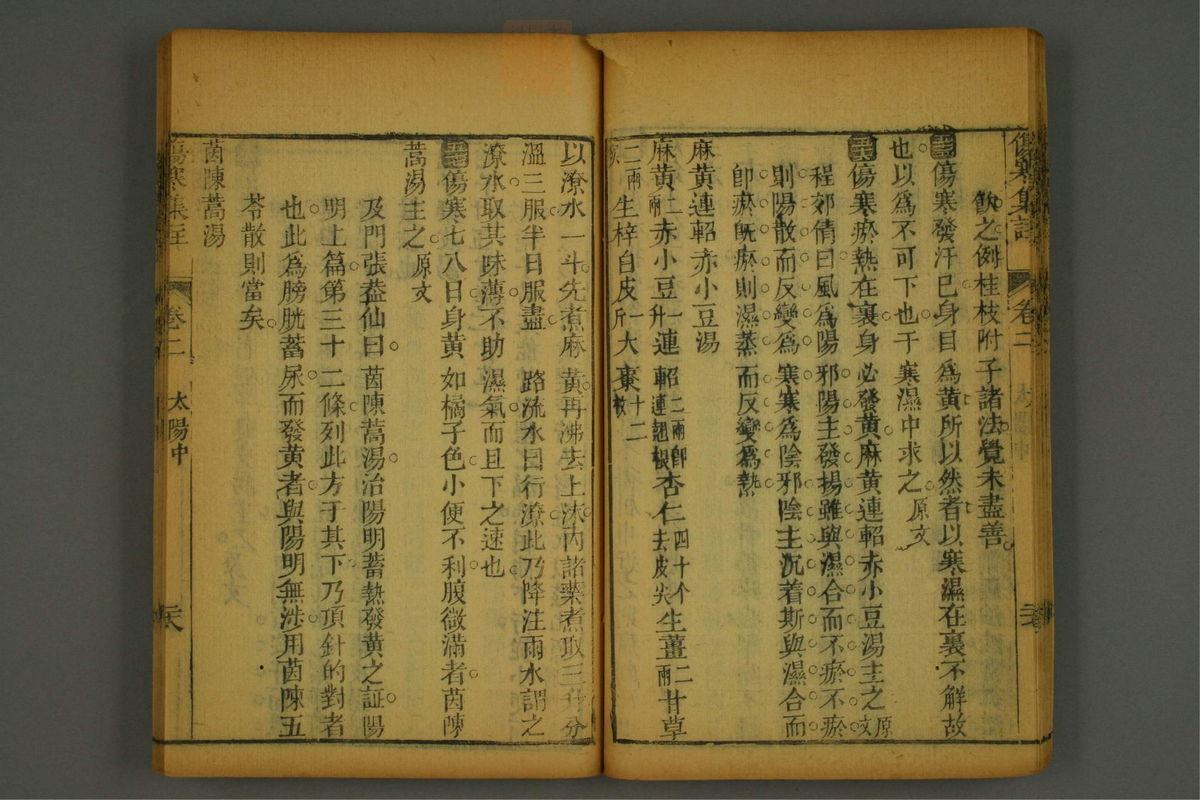 傷寒集註 卷二 太陽中
飲之例桂枝附子諸法覺未盡善
傷寒發汗已身目為黃所以然者以寒濕在裏不解故
也以為不可下也于寒濕中求之原文
傷寒瘀熱在裏身必發黃麻黃連軺赤小豆湯主之原文
程郊倩曰風為陽邪陽主發揚雖與濕合而不瘀不瘀
則陽散而反變為寒寒為陰邪陰主沉着斯與濕合而
卽瘀既瘀則濕蒸而反變為熱
麻黃連軺赤小豆湯
麻黃二兩赤小豆一升連軺二兩卽連翹根杏仁四十个去皮尖生薑二兩甘草
二兩生梓白皮一斤大棗十二枚
以潦水一斗先煮麻黃再沸去上沫內諸藥煮取三升分
溫三服半日服盡 路流水曰行潦此乃降注雨水謂之
潦水取其味薄不助濕氣而且下之速也
傷寒七八日身黃如橘子色小便不利腹微滿者茵陳
蒿湯主之原文
及門張蓋仙曰茵陳蒿湯治陽明蓄熱發黃之証陽
明上篇第三十二條列此方于其下乃頂針的對者
也此為膀胱蓄尿而發黃者與陽明無涉用茵陳五
苓散則當矣
茵陳蒿湯
傷寒集註 卷二 太陽中